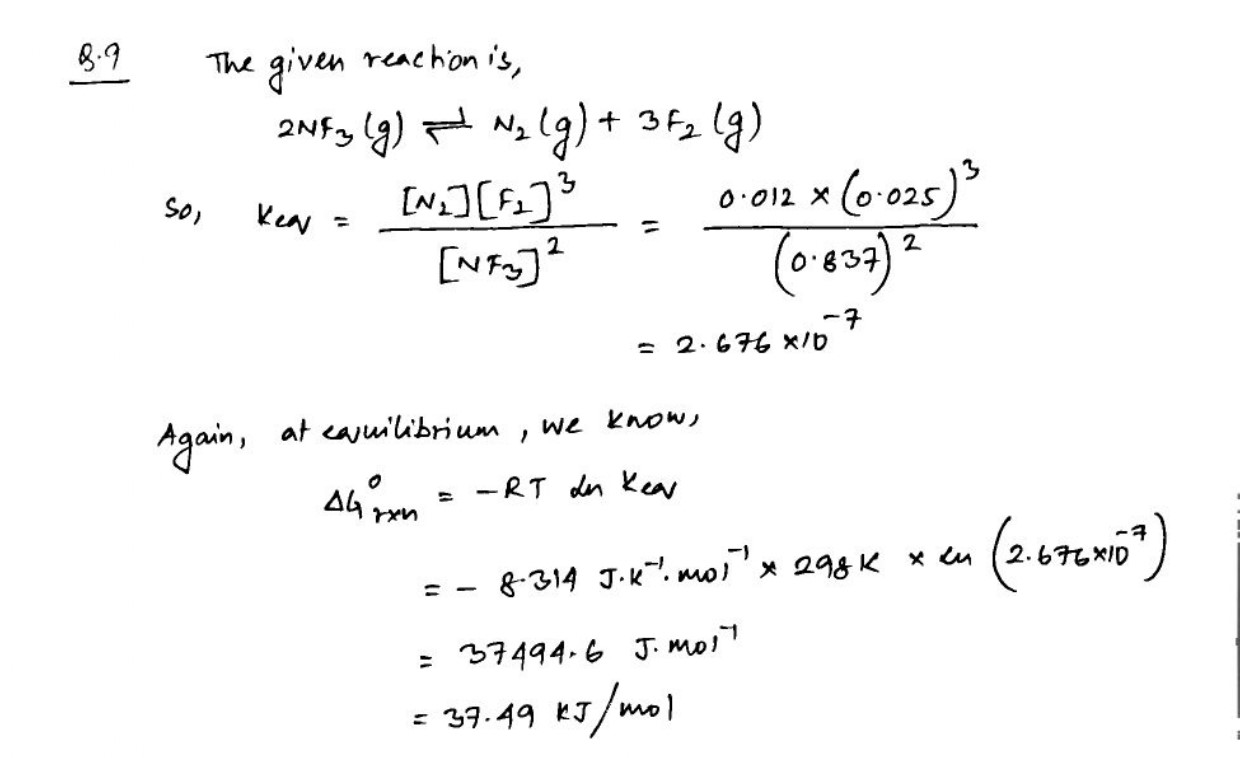 8.9 The given reaction is,
2NF₃(g) ⇌ N₂(g) + 3F₂(g)
So, Keq = [N₂][F₂]³ / [NF₃]² = 0.012 × (0.025)³ / (0.837)²
= 2.676 × 10⁻⁷
Again, at equilibrium, we know,
ΔG°rxn = -RT ln Keq
= - 8.314 J.K⁻¹.mol⁻¹ × 298K × ln (2.676×10⁻⁷)
= 37494.6 J.mol⁻¹
= 37.49 KJ/mol